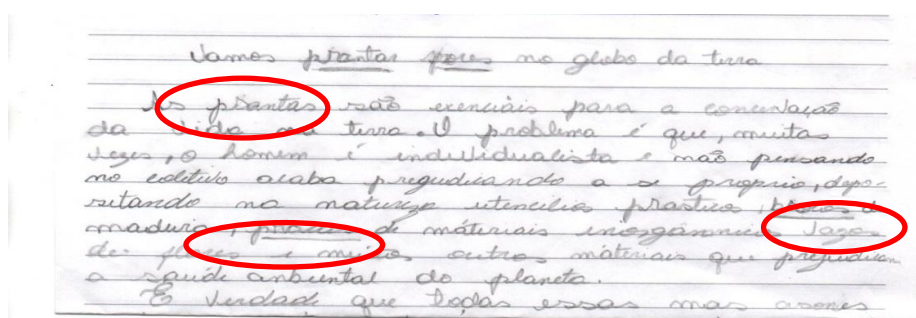 Vamos prantar frores no globo da terra
As prantas são exenciais para a concervação
da vida na terra. O problema é que, muitas
vezes, o homem é individualista e não pensando
no coletivo acaba prejudicando a si proprio, depo-
sitando na natureza utencilios prasticos, brocos de
madeira, de máteriais inorgánnicos Jagos
de flores e muitos outros máteriais que prejudicam
a saúde anbiental do planeta.
É verdade que todas essas mas asones